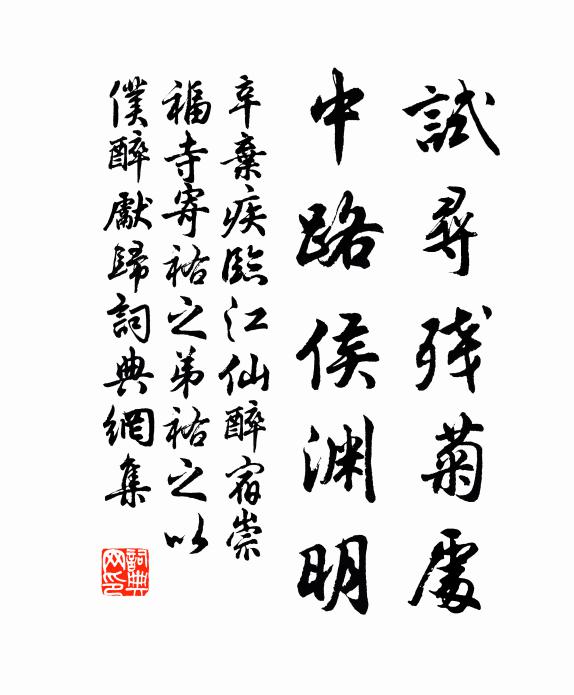 試尋残菊處
中路侯渊明
辛棄疾臨江仙醉宿崇
福寺寄祐之弟祐之以
僕醉獻歸詞典網集
詞典
网印